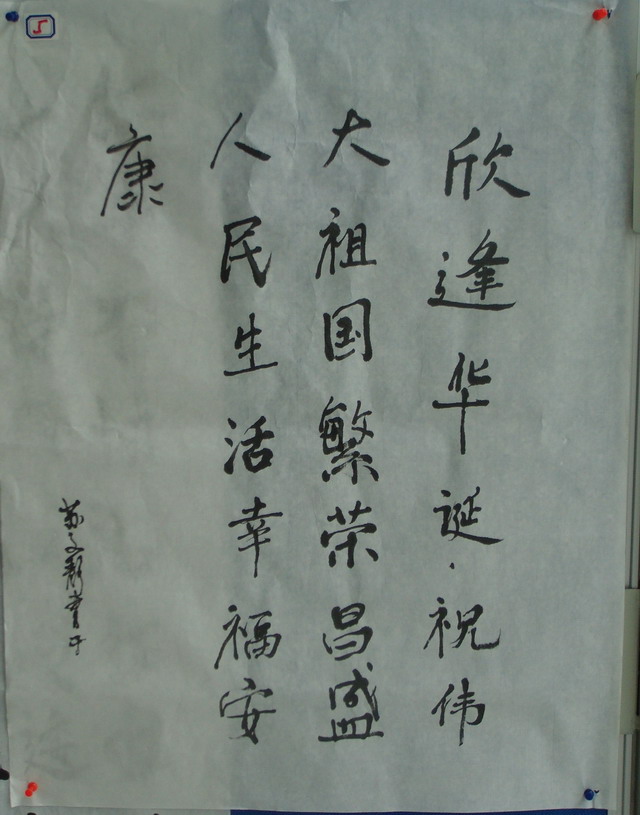 欣逢华诞.祝伟
大祖国繁荣昌盛
人民生活幸福安
康